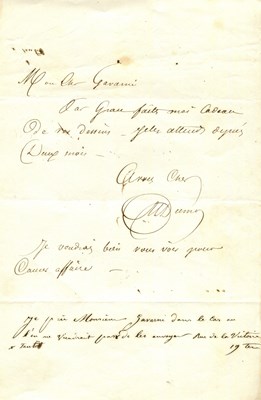 Mon cher Gavarni
Par Grace faites moi cadeau
de vos dessins – je les attends depuis
Deux mois –
A vous Cher
ADumas
Je voudrais bien vous voir pour
affaire –
Je prie Monsieur Gavarni dans le cas où
il ne voudrait pas de les envoyer Rue de la Victoire